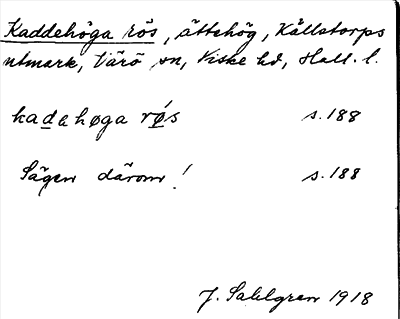 Kaddehöga rös, ättehög, Källstorps
utmark, Värö sn, Viske hd, Hall. l.
kadahøga røs s. 188
Sägen därom! s. 188
J. Sahlgren 1918